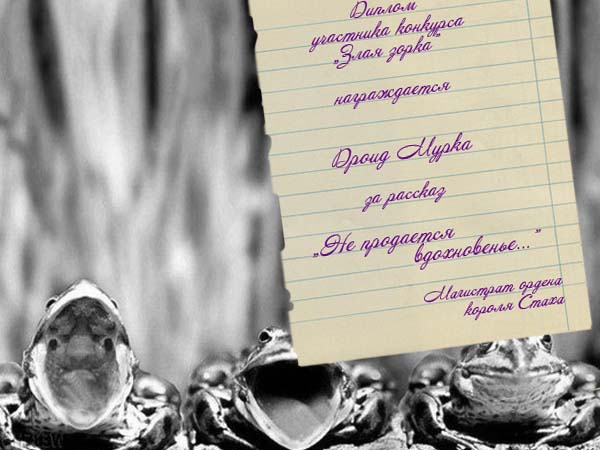 Диплом
участника конкурса
„Злая зорка"
награждается
Дроид Мурка
за рассказ
„Не продается
вдохновенье..."
Магистрат ордена
короля Стаха